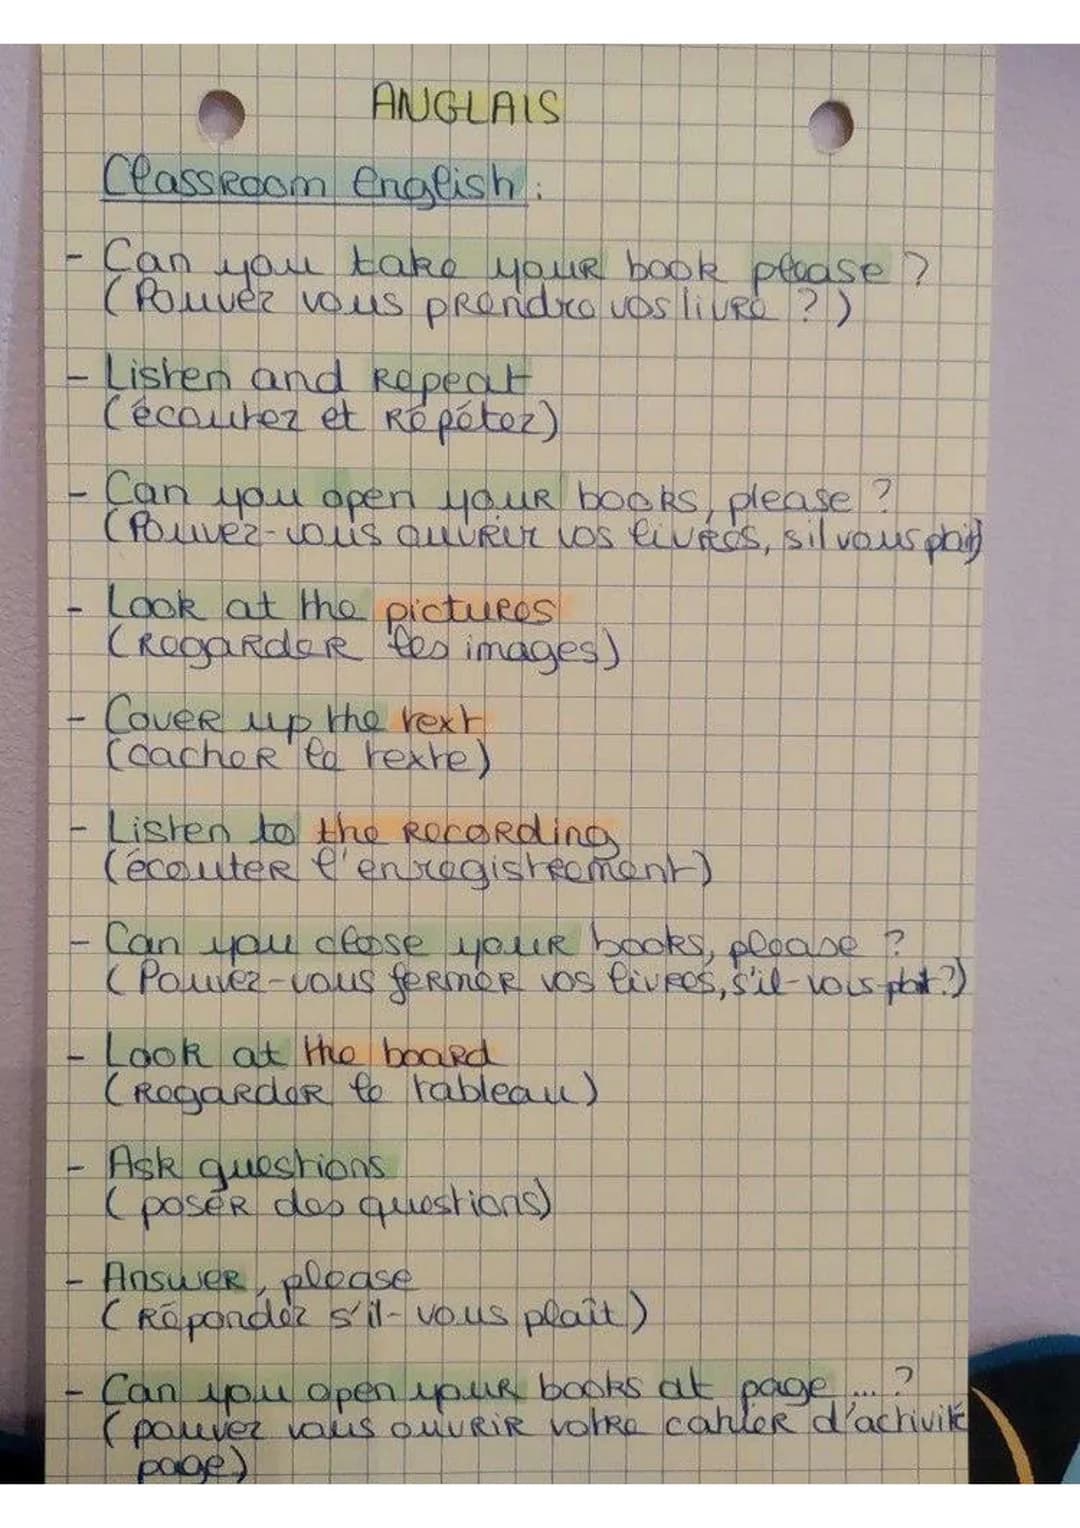 ANGLAIS
Classroom english :
- Can you take your book please ?
(Pouvez vous prendre vos livre ?)
- Listen and Repeat
(écoutez et Répétez)
- Can you open your books, please ?
(Pouvez-vous ouvrir vos livres, sil vous plait)
- Look at the pictures
(Regarder les images)
- Cover up the text
(cacher le texte)
- Listen to the Recording
(écouter l'enregistrement)
- Can you close your books, please ?
(Pouvez-vous fermer vos livres, s'il-vous-plait ?)
- Look at the board
(Regarder le tableau)
- Ask questions
(poser des questions)
- Answer, please
(Répondez s'il-vous plaît)
- Can you open your books at page ... ?
(pouvez vous ouvrir votre cahier d'activité
page)